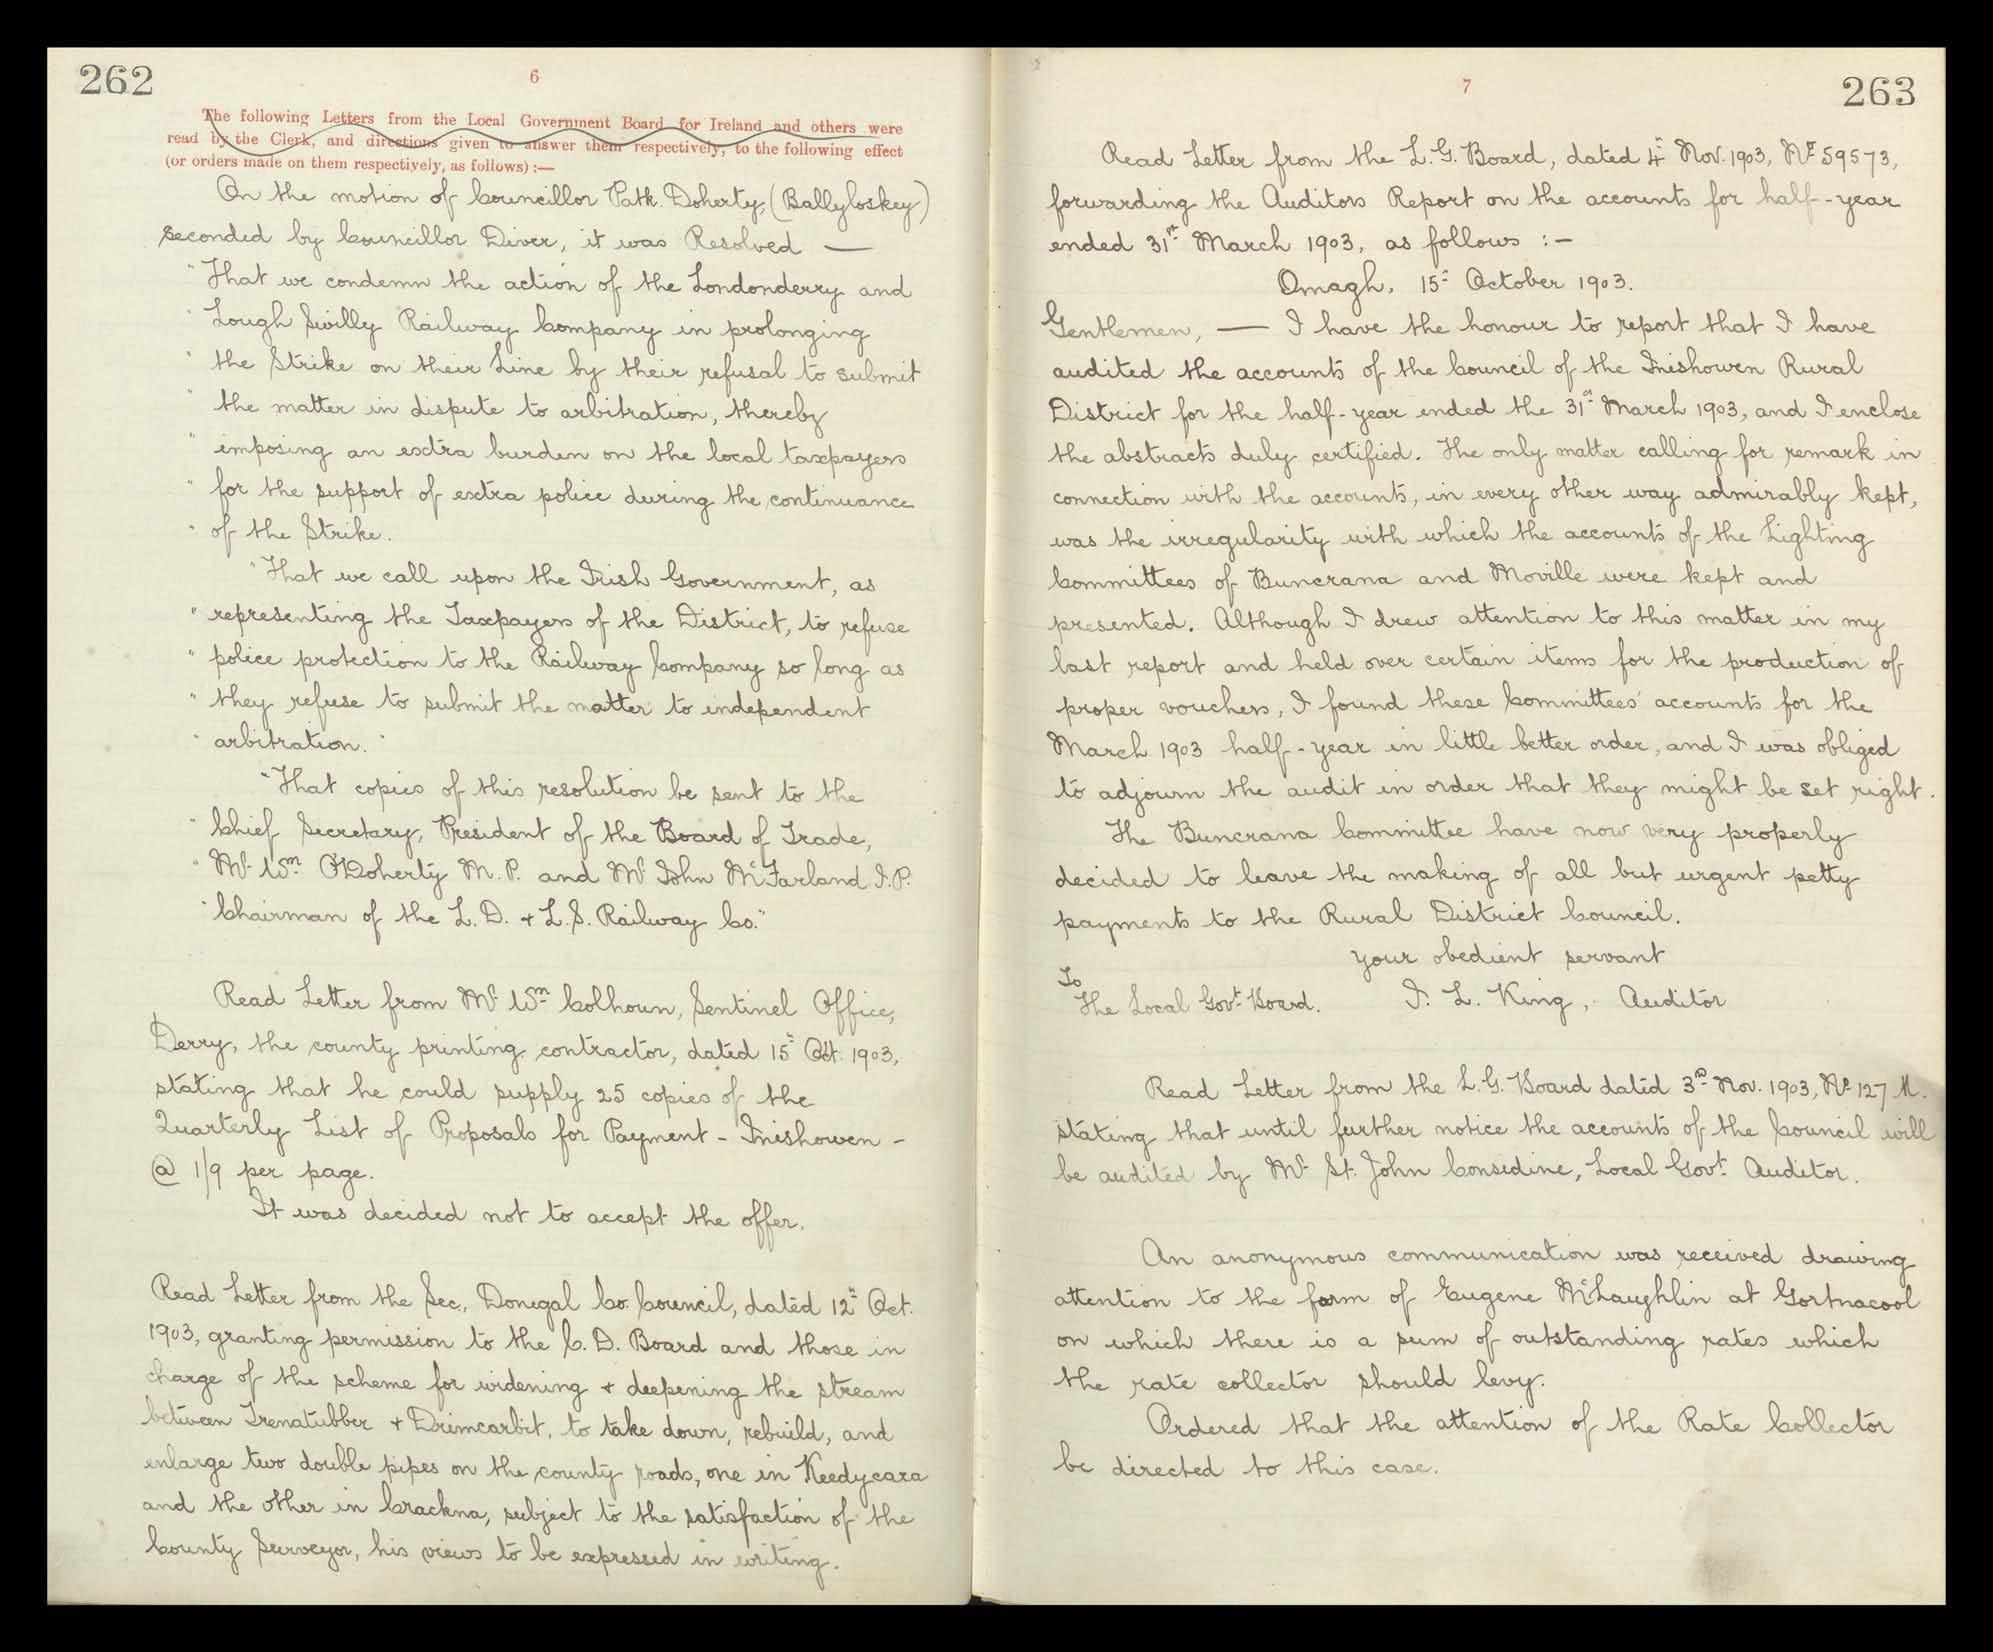 262
6
The following Letters from the Local Government Board for Ireland and others were
read by the Clerk, and directions given to answer them respectively, to the following effect
(or orders made on them respectively, as follows) :—
On the motion of Councillor Patk. Doherty, (Ballyloskey)
seconded by Councillor Diver, it was Resolved —
"That we condemn the action of the Londonderry and
" Lough Swilly Railway Company in prolonging
" the Strike on their Line by their refusal to submit
" the matter in dispute to arbitration, thereby
" imposing an extra burden on the local taxpayers
" for the support of extra police during the continuance
" of the Strike.
"That we call upon the Irish Government, as
" representing the Taxpayers of the District, to refuse
" police protection to the Railway Company so long as
" they refuse to submit the matter to independent
" arbitration. "
"That copies of this resolution be sent to the
" Chief Secretary, President of the Board of Trade,
" Mr. Wm. O'Doherty M.P. and Mr John McFarland J.P.
" Chairman of the L.D. + L.S. Railway Co."
Read Letter from Mr. Wm. Colhoun, Sentinel Office,
Derry, the county printing contractor, dated 15th Oct. 1903,
stating that he could supply 25 copies of the
Quarterly List of Proposals for Payment - Inishowen -
@ 1/9 per page.
It was decided not to accept the offer.
Read Letter from the Sec., Donegal Co. Council, dated 12th Oct.
1903, granting permission to the C. D. Board and those in
charge of the scheme for widening + deepening the stream
between Trenatubber + Drimcarbit, to take down, rebuild, and
enlarge two double pipes on the county roads, one in Keedycara
and the other in Crackna, subject to the satisfaction of the
County Surveyor, his views to be expressed in writing.
7
263
Read Letter from the L.G. Board, dated 4th Nov. 1903, No. 59573,
forwarding the Auditors Report on the accounts for half-year
ended 31st March 1903, as follows :-
Omagh, 15th October 1903.
Gentlemen, — I have the honour to report that I have
audited the accounts of the Council of the Inishowen Rural
District for the half-year ended the 31st March 1903, and I enclose
the abstracts duly certified. The only matter calling for remark in
connection with the accounts, in every other way admirably kept,
was the irregularity with which the accounts of the Lighting
Committees of Buncrana and Moville were kept and
presented. Although I drew attention to this matter in my
last report and held over certain items for the production of
proper vouchers, I found these Committees' accounts for the
March 1903 half-year in little better order, and I was obliged
to adjourn the audit in order that they might be set right.
The Buncrana Committee have now very properly
decided to leave the making of all but urgent petty
payments to the Rural District Council.
Your obedient servant
To
The Local Govt. Board. J. L. King, Auditor
Read Letter from the L.G. Board dated 3rd Nov. 1903, No. 127 M.
stating that until further notice the accounts of the Council will
be audited by Mr. St. John Considine, Local Govt. Auditor.
An anonymous communication was received drawing
attention to the farm of Eugene McLaughlin at Gortnacool
on which there is a sum of outstanding rates which
the rate collector should levy.
Ordered that the attention of the Rate Collector
be directed to this case.